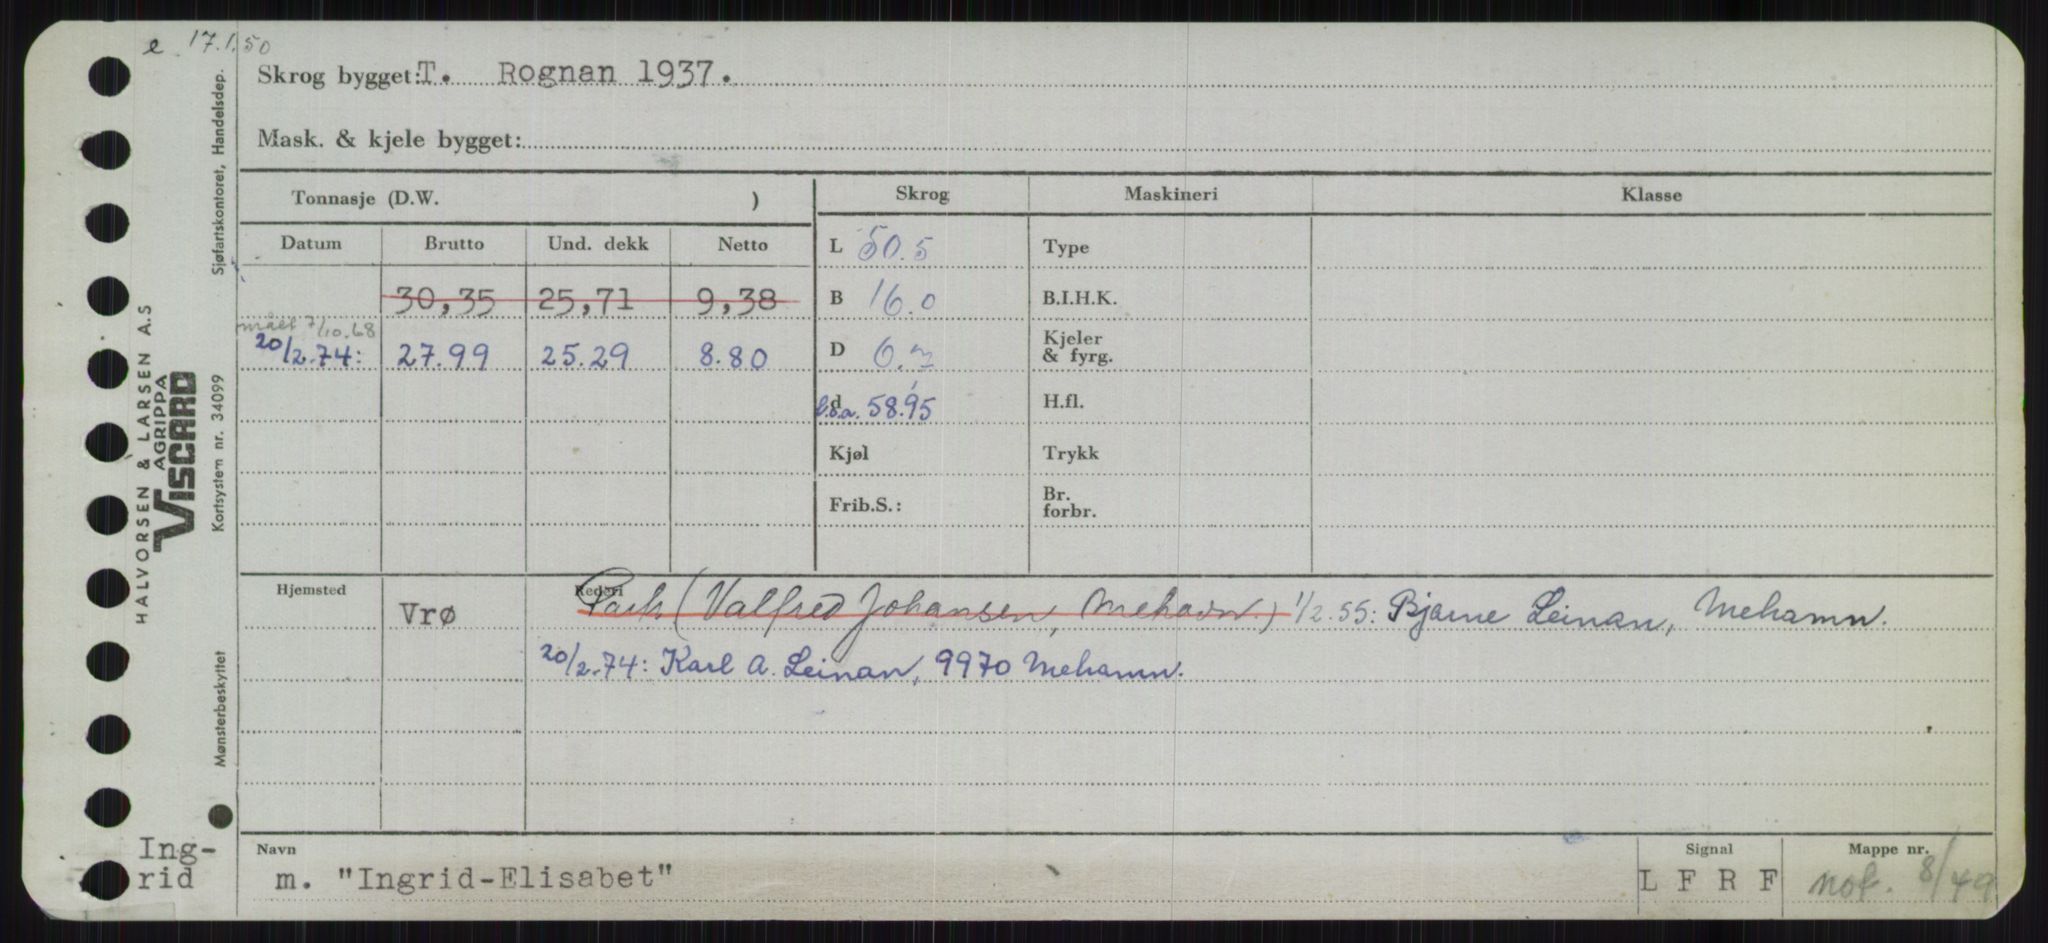 e 17.1.50
Skrog bygget: T. Rognan 1937.
Mask. & kjele bygget:
Tonnasje (D.W. )
Skrog Maskineri Klasse
Datum Brutto Und. dekk Netto
L 50.5 Type
30,35 25,71 9,38
B 16.0 B.I.H.K.
målt 7/10.68
20/2.74: 27.99 25.29 8.80
D 6. Kjeler & fyrg.
d l.o.a. 58.95 H.fl.
Kjøl Trykk
Frib.S.: Br. forbr.
Hjemsted Rederi
Vrø (Valfred Johansen, Mehavn.) 1/2.55: Bjarne Leinan, Mehamn.
20/2.74: Karl A. Leinan, 9970 Mehamn.
Navn Signal Mappe nr.
m. "Ingrid-Elisabet" L F R F not. 8/49
Ing-
rid
HALVORSEN & LARSEN A.S
AGRIPPA
VISCARD
Sjøfartskontoret, Handelsdep.
Kortsystem nr. 34099
Mønsterbeskyttet